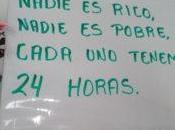 NADIE ES RICO,
NADIE ES POBRE,
CADA UNO TENEM
24 HORAS.